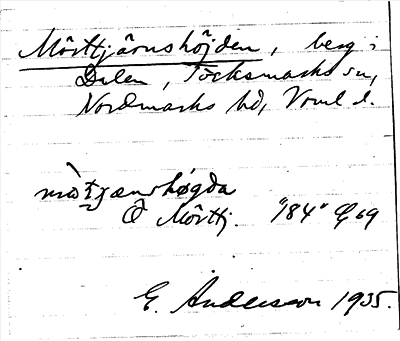 Mörttjärnshöjden, berg i
Dalen, Töcksmarks sn,
Nordmarks hd, Vrml l.
mòt̯jænshøgda
Ö Mörttj. "184" Q 69
E. Andersson 1935.